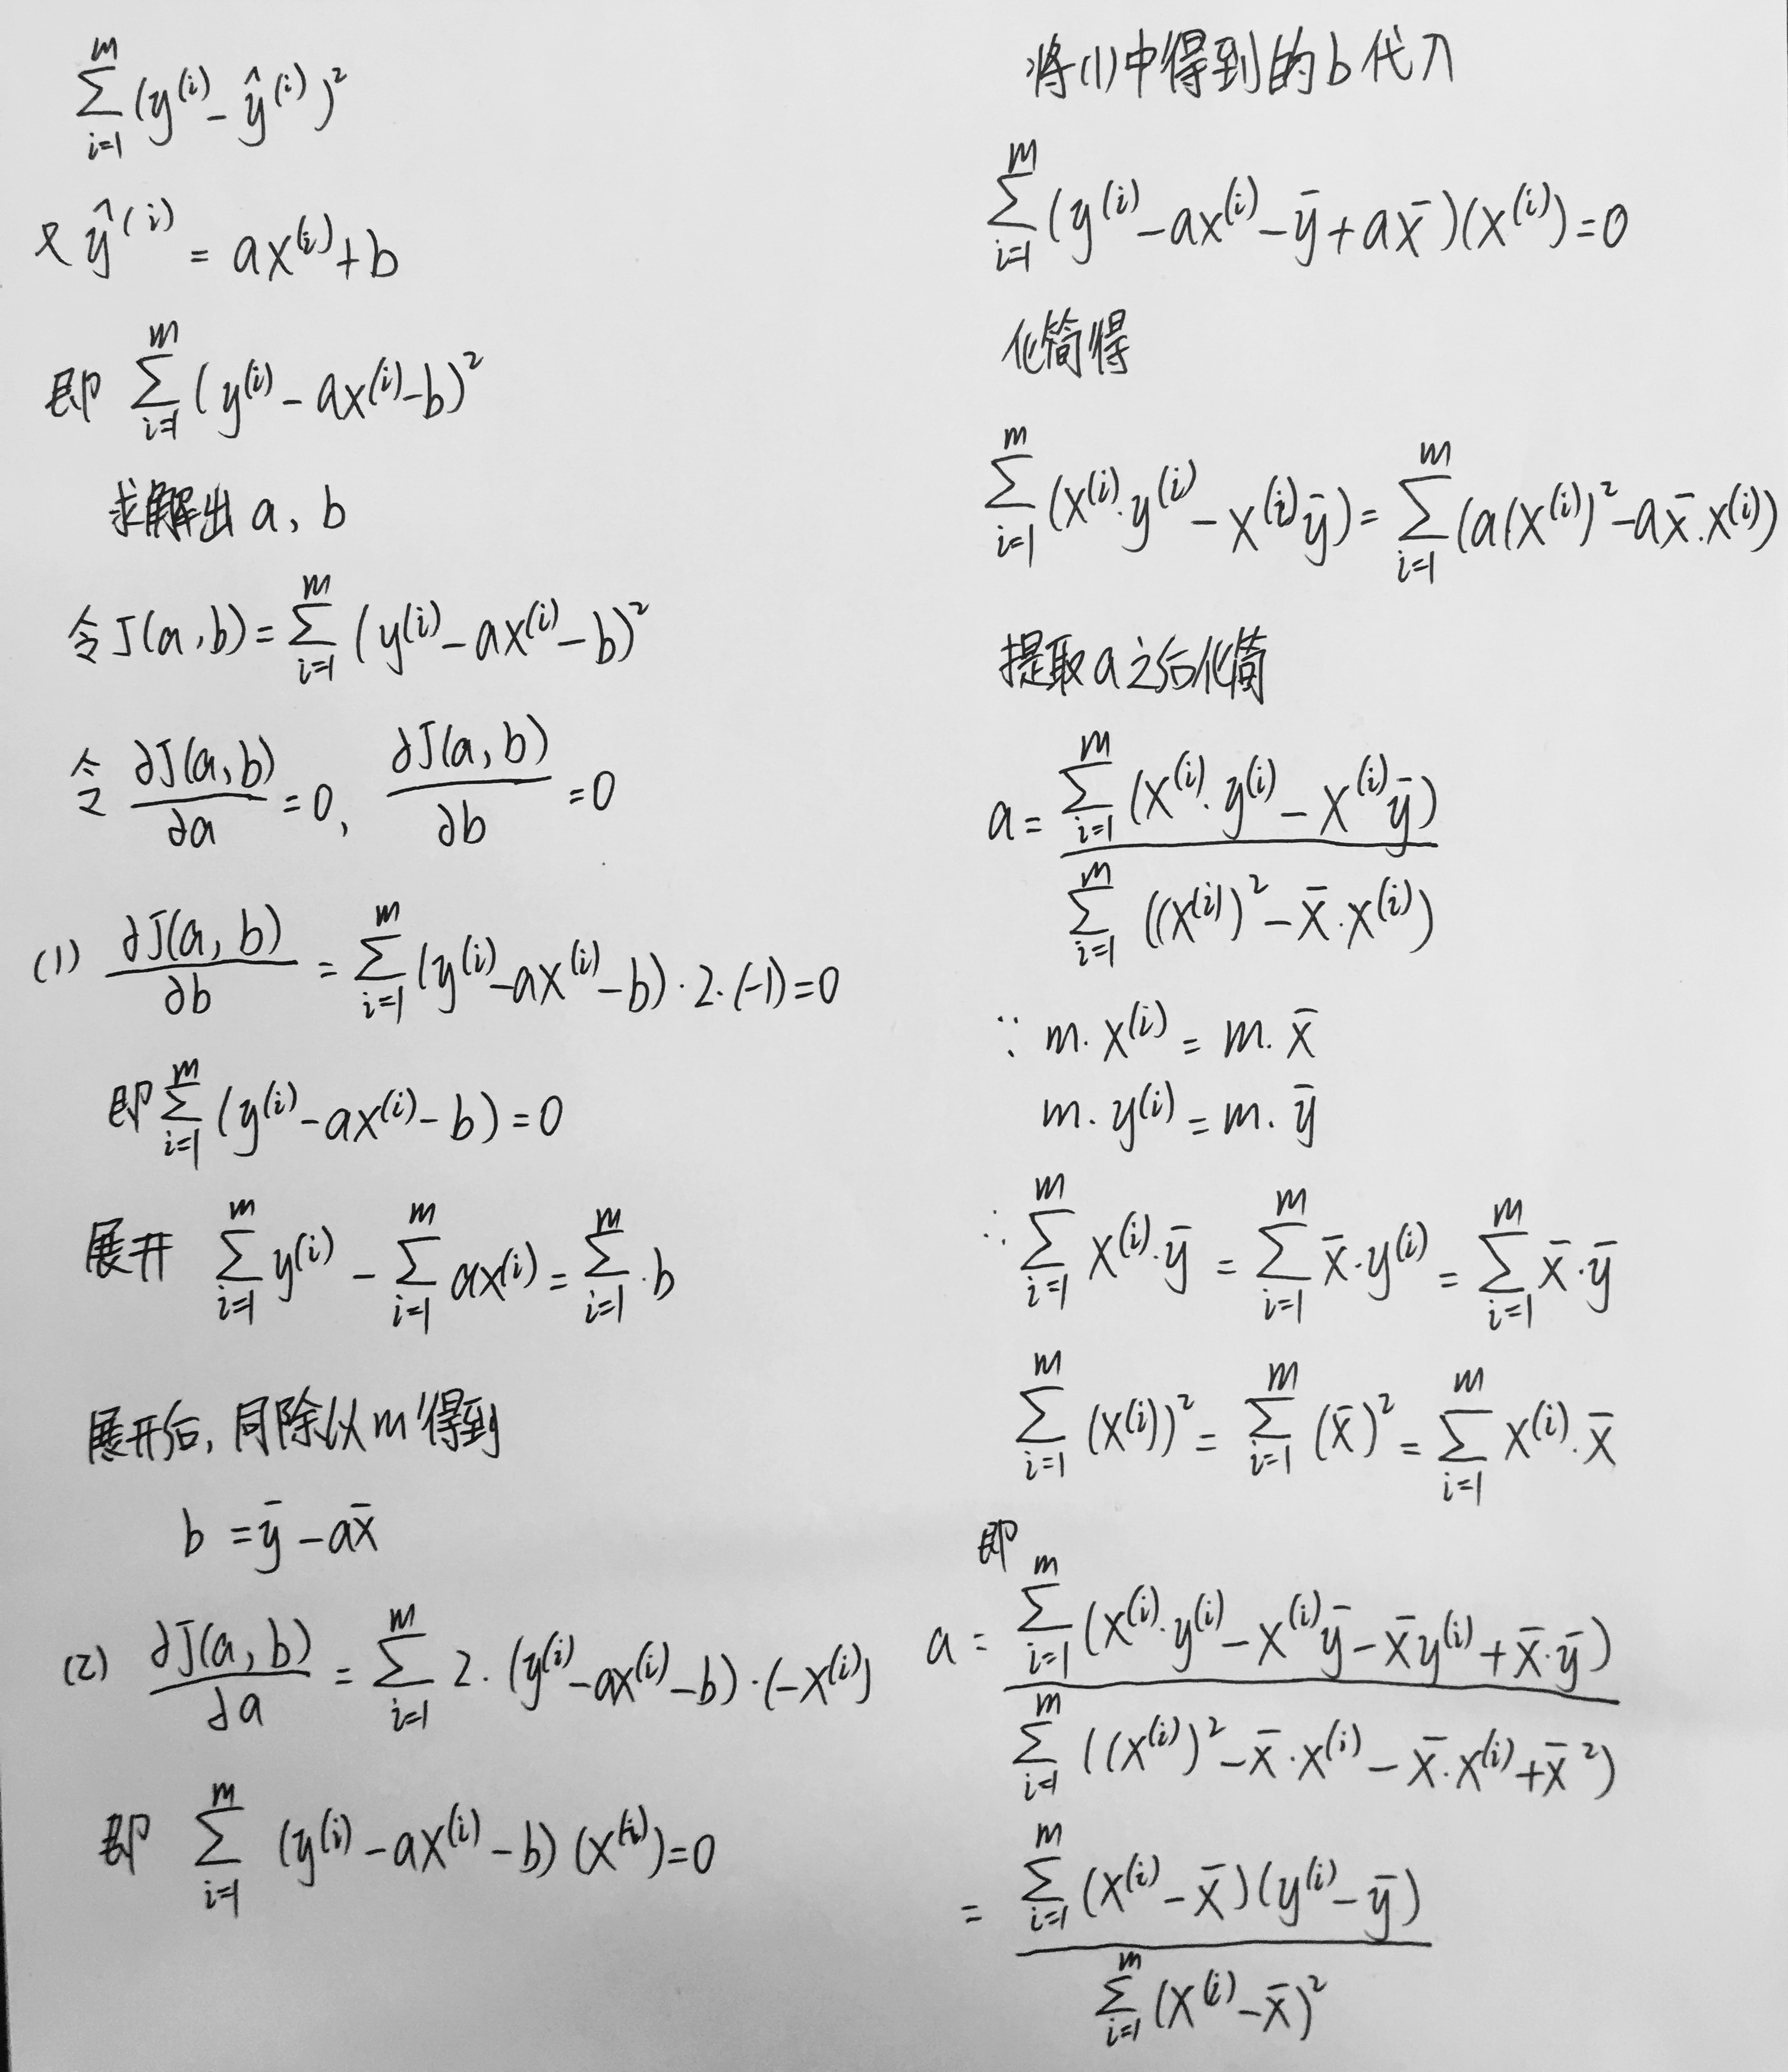 $\sum_{i=1}^{m}(y^{(i)}-\hat{y}^{(i)})^2$
又 $\hat{y}^{(i)}=ax^{(i)}+b$
即 $\sum_{i=1}^{m}(y^{(i)}-ax^{(i)}-b)^2$
求解出 a、b
令 $J(a,b)=\sum_{i=1}^{m}(y^{(i)}-ax^{(i)}-b)^2$
令 $\frac{\partial J(a,b)}{\partial a}=0,\ \frac{\partial J(a,b)}{\partial b}=0$
(1) $\frac{\partial J(a,b)}{\partial b}=\sum_{i=1}^{m}(y^{(i)}-ax^{(i)}-b)\cdot 2\cdot(-1)=0$
即 $\sum_{i=1}^{m}(y^{(i)}-ax^{(i)}-b)=0$
展开 $\sum_{i=1}^{m}y^{(i)}-\sum_{i=1}^{m}ax^{(i)}=\sum_{i=1}^{m}\cdot b$
展开后, 同除以m得到
$b=\bar{y}-a\bar{x}$
(2) $\frac{\partial J(a,b)}{\partial a}=\sum_{i=1}^{m}2\cdot(y^{(i)}-ax^{(i)}-b)\cdot(-x^{(i)})$
即 $\sum_{i=1}^{m}(y^{(i)}-ax^{(i)}-b)(x^{(i)})=0$
将(1)中得到的b代入
$\sum_{i=1}^{m}(y^{(i)}-ax^{(i)}-\bar{y}+a\bar{x})(x^{(i)})=0$
化简得
$\sum_{i=1}^{m}(x^{(i)}\cdot y^{(i)}-x^{(i)}\bar{y})=\sum_{i=1}^{m}(a(x^{(i)})^2-a\bar{x}\cdot x^{(i)})$
提取a之后化简
$a=\frac{\sum_{i=1}^{m}(x^{(i)}\cdot y^{(i)}-x^{(i)}\bar{y})}{\sum_{i=1}^{m}((x^{(i)})^2-\bar{x}\cdot x^{(i)})}$
∵ $m\cdot x^{(i)}=m\cdot\bar{x}$
$m\cdot y^{(i)}=m\cdot\bar{y}$
∴ $\sum_{i=1}^{m}x^{(i)}\cdot\bar{y}=\sum_{i=1}^{m}\bar{x}\cdot y^{(i)}=\sum_{i=1}^{m}\bar{x}\cdot\bar{y}$
$\sum_{i=1}^{m}(x^{(i)})^2=\sum_{i=1}^{m}(\bar{x})^2=\sum_{i=1}^{m}x^{(i)}\cdot\bar{x}$
即
$a=\frac{\sum_{i=1}^{m}(x^{(i)}\cdot y^{(i)}-x^{(i)}\bar{y}-\bar{x}y^{(i)}+\bar{x}\cdot\bar{y})}{\sum_{i=1}^{m}((x^{(i)})^2-\bar{x}\cdot x^{(i)}-\bar{x}\cdot x^{(i)}+\bar{x}^2)}$
$=\frac{\sum_{i=1}^{m}(x^{(i)}-\bar{x})(y^{(i)}-\bar{y})}{\sum_{i=1}^{m}(x^{(i)}-\bar{x})^2}$